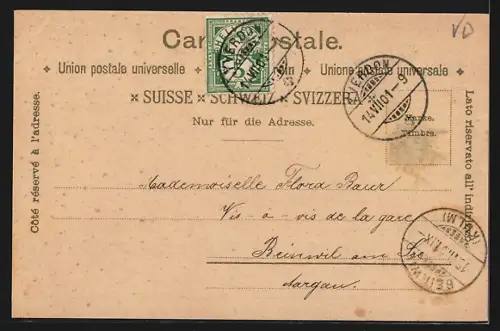 VD
Ca postale.
Union postale universelle Unione postale universale
SUISSE SCHWEIZ SVIZZERA
Nur für die Adresse.
Côté réservé à l'adresse.
Lato riservato all' indi
Marke.
Timbre.
YVERDON
YVERDON
14.VII.01-9
Mademoiselle Flora Baur
Vis-à-vis de la gare
Beinwil am See
Aargau.
BEINWIL
(KULM)